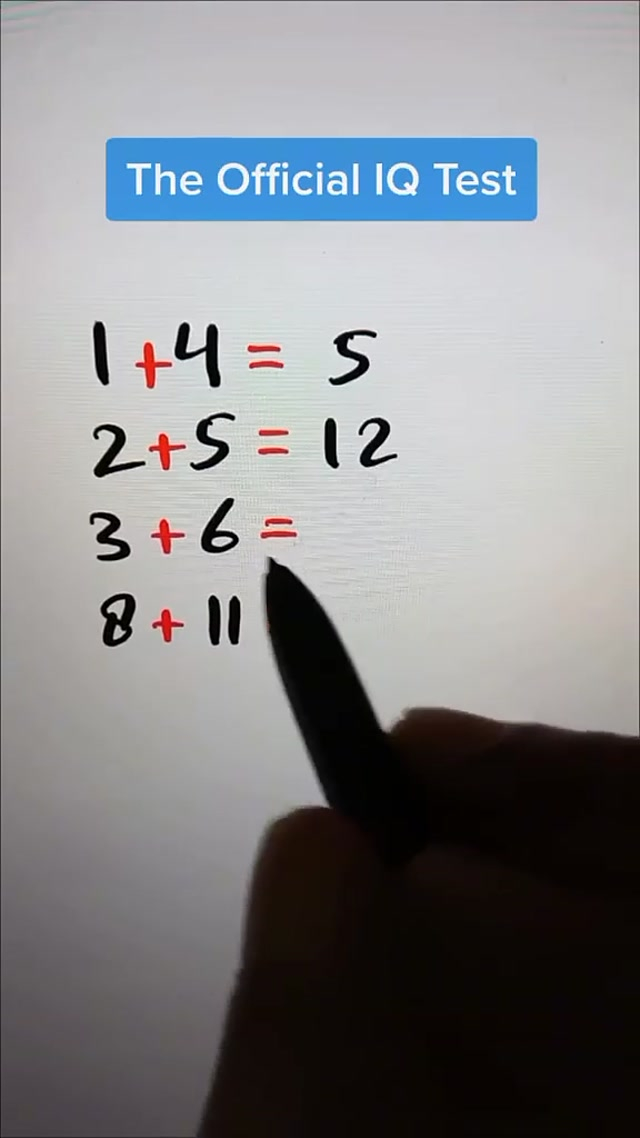 The Official IQ Test
1+4= 5
2+5=12
3+6=
8+11